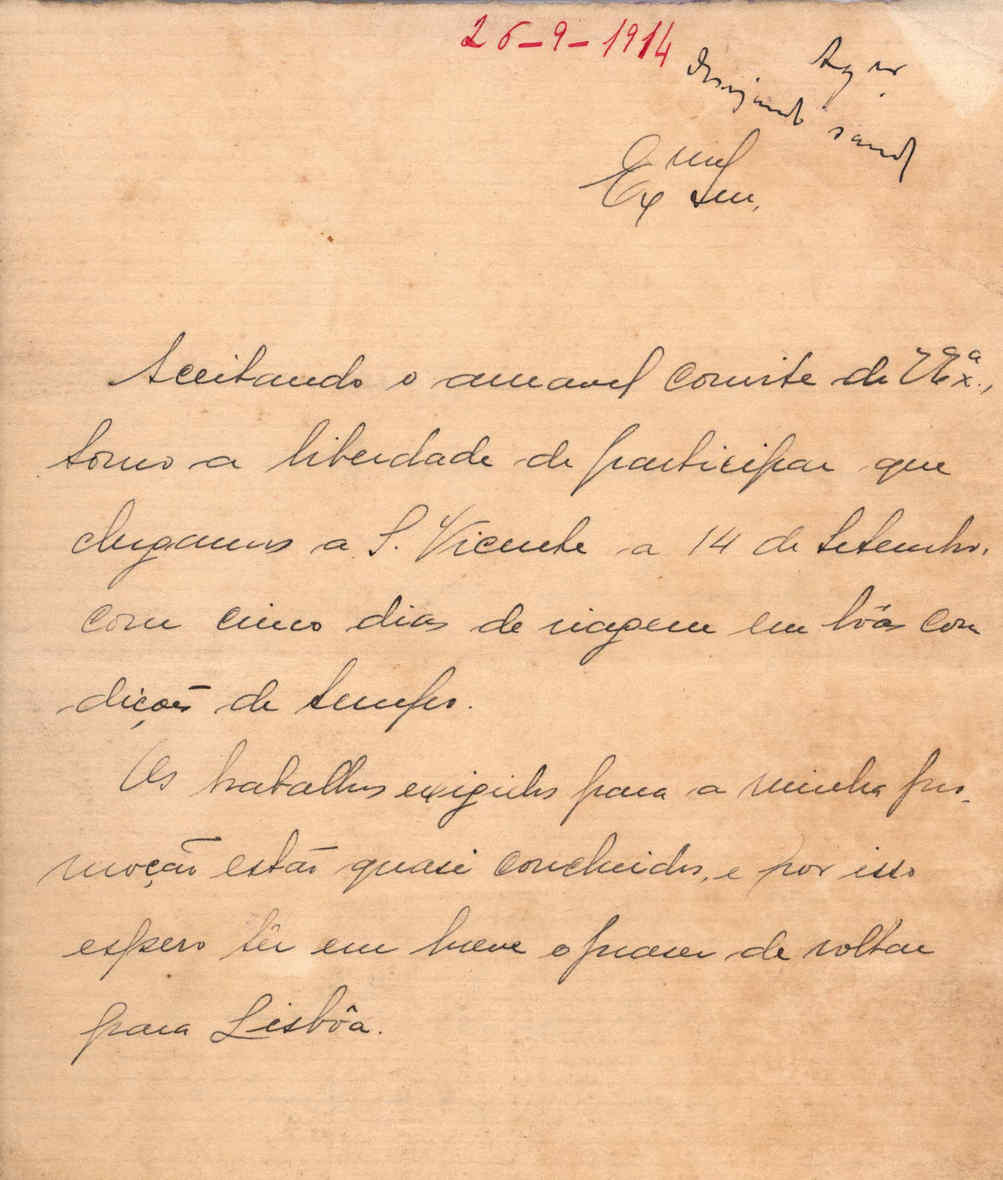 26-9-1914
Agr.
desejando saud
Exmo Snr.
Aceitando o amavel convite de V. Exª.,
tomo a liberdade de participar que
chegamos a S. Vicente a 14 de Setembro,
com cinco dias de viagem em bôas con
dições de tempo.
Os trabalhos exigidos para a minha pro-
moção estão quasi concluidos, e por isso
espero têr em breve o praser de voltar
para Lisbôa.